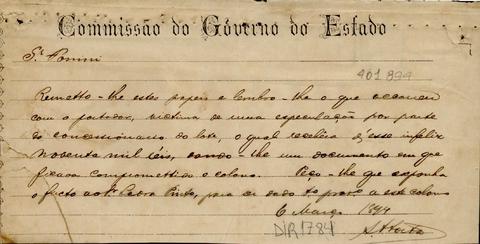 Commissão do Governo do Estado
Sr. Pomini
401899
Remetto-lhe estes papeis e lembro-lhe o que occorreu
com o portador, victima de uma especulação por parte
do concessionario do lote, o qual recebeu d'esse infeliz
noventa mil réis, dando-lhe um documento em que
ficava compromettido o colono. Peço-lhe que exponha
o facto ao Pinto, para ser dado a este colono
6 Março
DIR1784